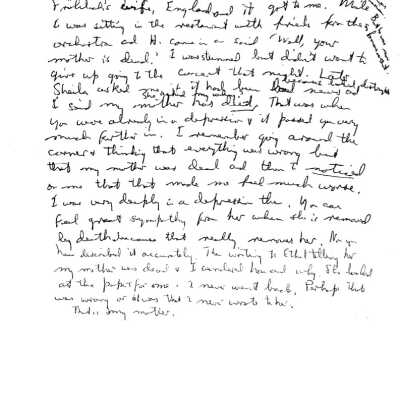 wife, England and it got to me.
I was sitting in the restaurant with friends for the
orchestra and H. came in & said "Well, your
mother is dead." I was stunned but didn't want to
give up going to the concert that night. Later
Sheila asked if it had been bad news and
I said my mother has died. That was when
you were already in a depression & it passed you very
much further in. I remember going around the
corner & thinking that everything was wrong but
that my mother was dead and then I noticed
on me that that made me feel much worse.
I was very deeply in a depression then. You can
feel great sympathy for her when she is removed
by death because that really removes her. Now you
have described it accurately. The writing to Ethel telling her
my mother was dead & I wondered how and why she looked
at the paper for me. I never went back. Perhaps that
was wrong or it was that I never wrote to her.
That is my mother.